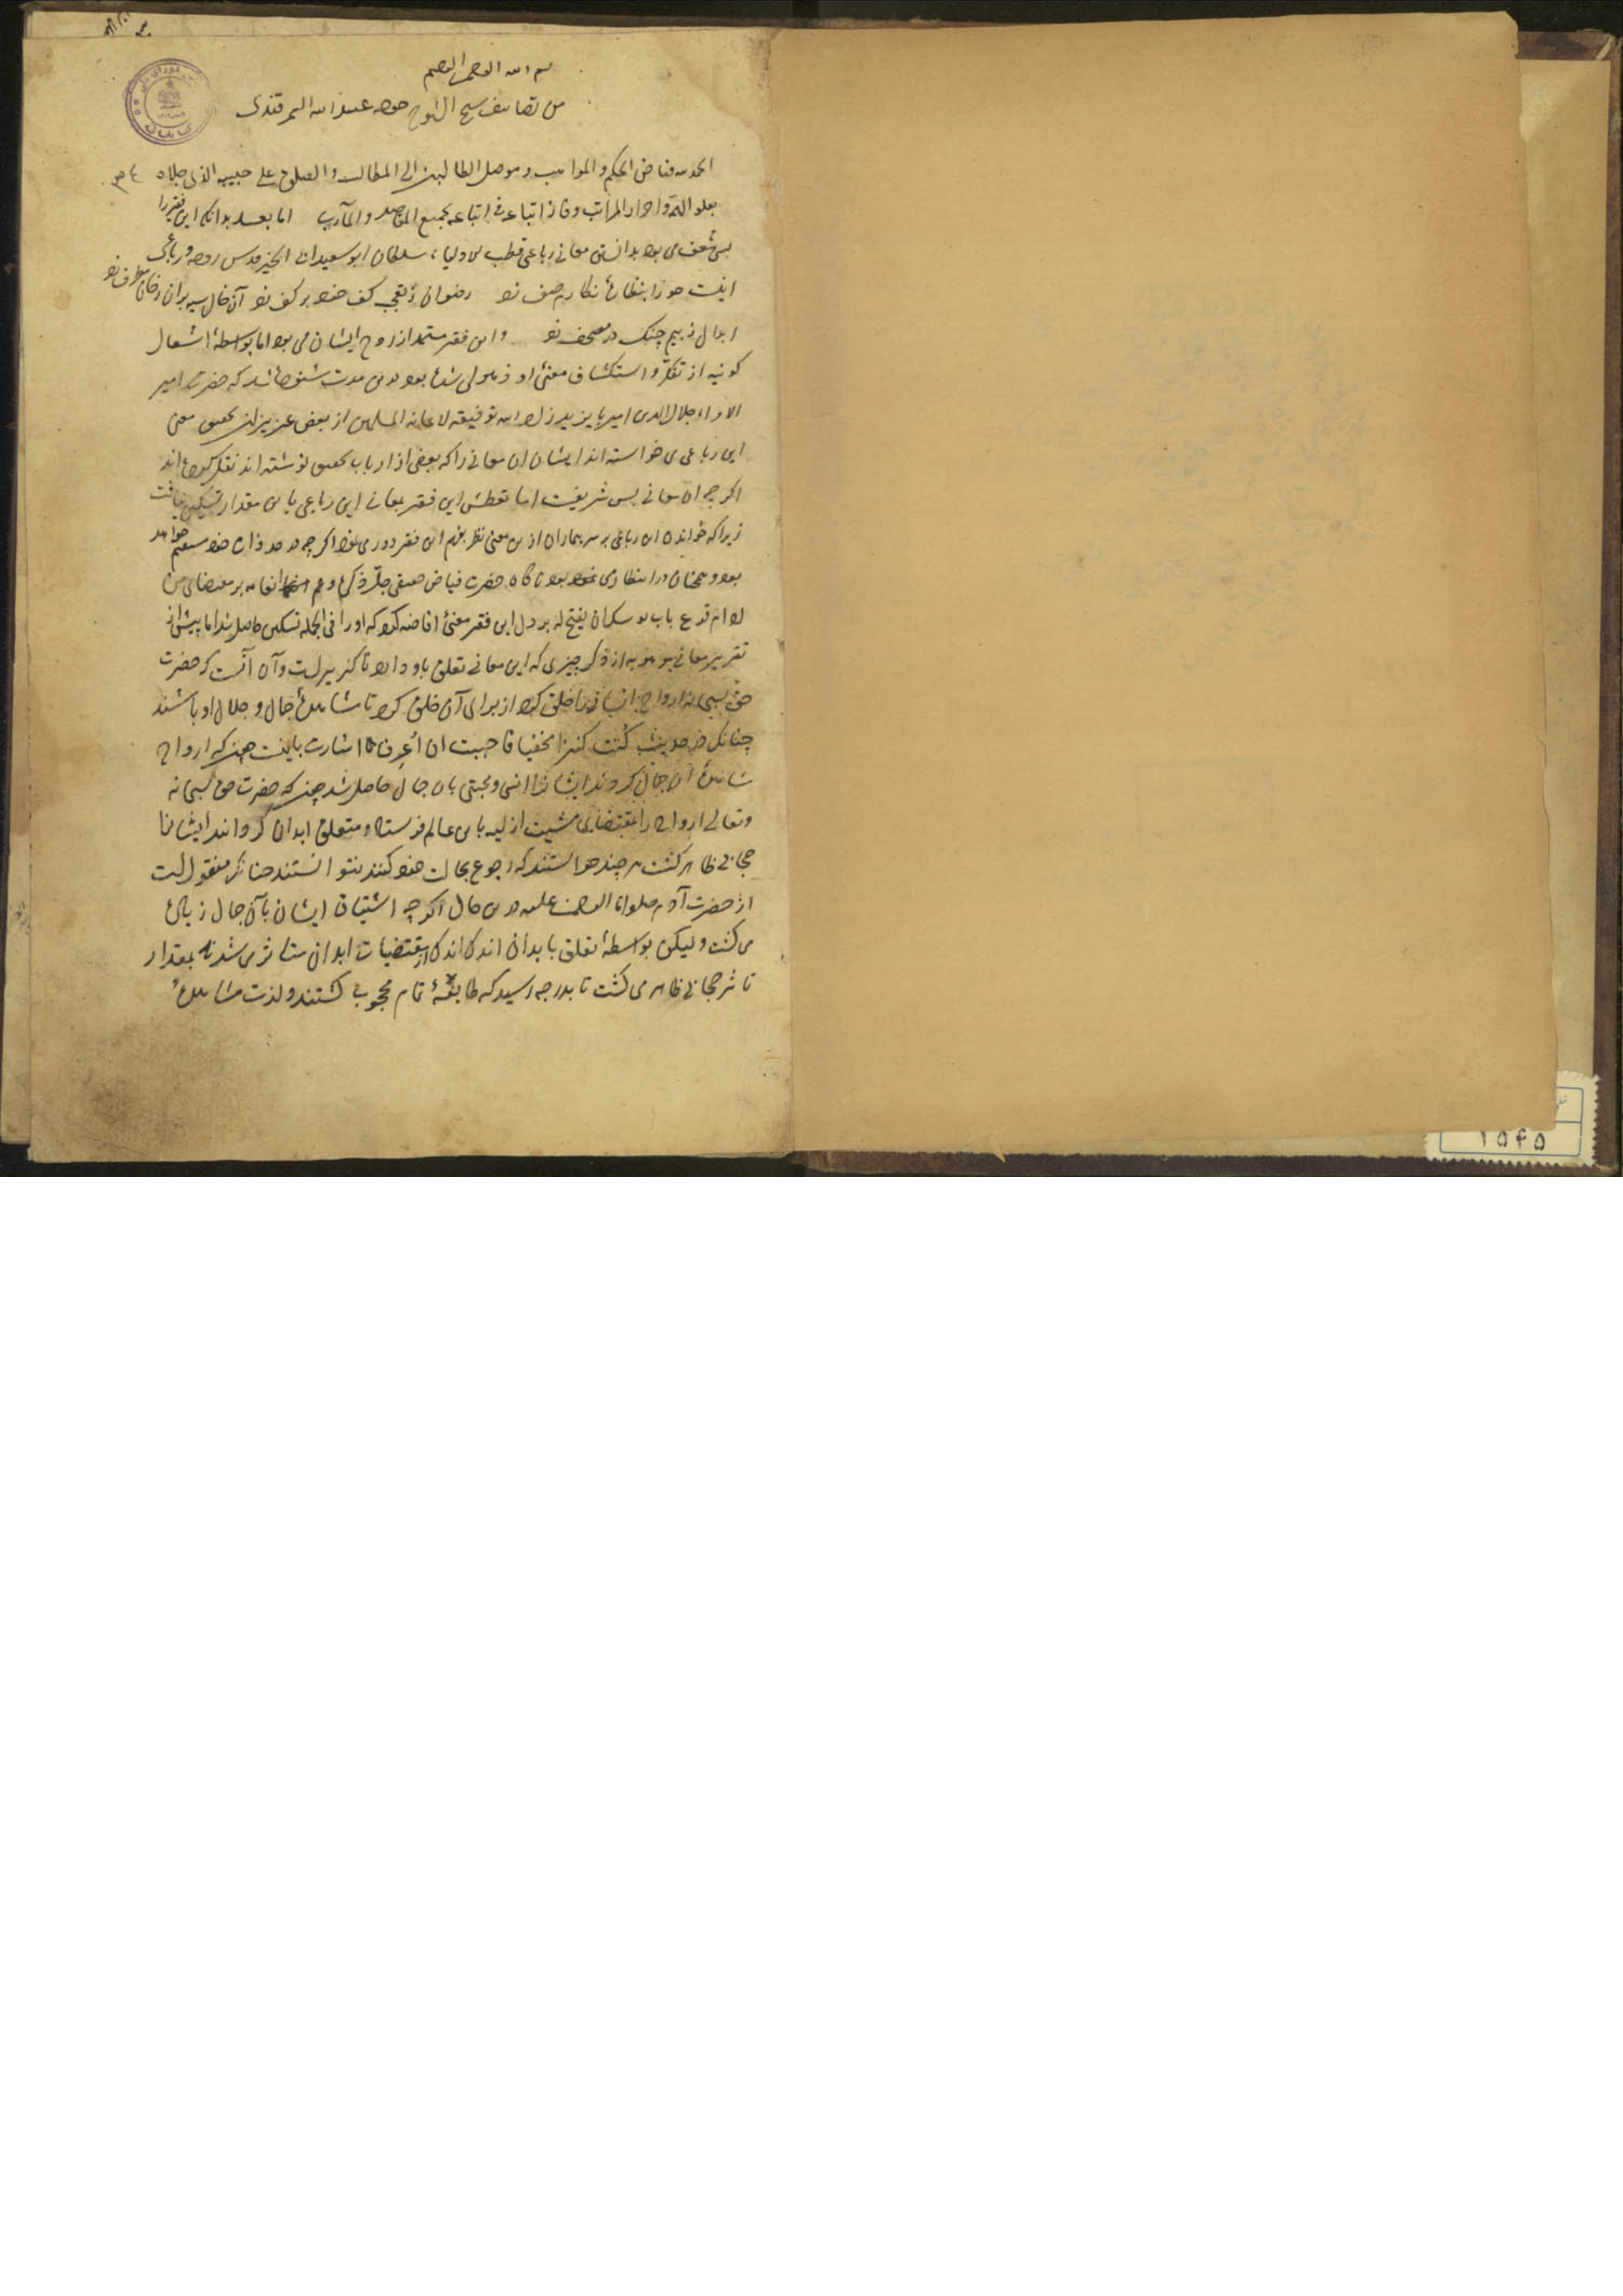 بسم الله الرحمن الرحیم
من تصانیف شیخ الشیوخ خواجه عبیدالله السمرقندی
الحمد لله فیاض الحکم والمواهب و موصل الطالبین الی المطالب والصلوة علی حبیبه الذی جلاه
بعلو المراتب وفاز اتباعه فی اتباعه بجمیع المقاصد والمآرب اما بعد بدانکه این فقیر را
بس شعف می بود بدانستن معانی رباعی قطب الاولیاء سلطان ابو سعید ابن ابی الخیر قدس روحه و رباعی
اینست حورا بنظارهٔ نکارم صف زد رضوان ز تعجب کف خود بر کف زد آن خال سیه بران رخان مطرف زد
ابدال ز بیم چنک در مصحف زد و این فقیر مستمد از روح ایشان می بود اما بواسطهٔ اشتغال
کونیه از تفکر و استکشاف معنی او ذهولی شده بود درین مدت شنوده شد که حضرت امیر
الامراء جلال الدین امیر بایزید زاد الله توفیقه لاعانه المسلمین از بعض عزیزان تحقیق معنی
این رباعی می خواسته اند ایشان ان معانی را که بعضی از ارباب تحقیق نوشته اند نقل کرده اند
اکر چه ان معانی بس شریفست اما تعطش این فقیر بمعانی این رباعی باین مقدار تسکین نیافت
زیرا که خواندن این رباعی بر سر بیماران ازین معنی نظر بفهم این فقیر دور می نمود اکر چه در حد ذات خود مستقیم خواهد
بود و همچنان در انتظار می بود ناکاه حضرت فیاض حقیقی جل ذکره و عم انعامه بر مقتضای من
ادام قرع باب یوشک ان یفتح له بر دل این فقیر معنیٔ افاضه کرد که او را فی الجمله تسکین حاصل شد اما پیش از
تقریر معانی موهوبه از ذکر چیزی که این معانی تعلق باو دارد ناکزیرست و آن آنست که حضرت
حق سبحانه ارواح انسانی را خلق کرد از برای آن خلق کرد تا مشاهدهٔ جمال و جلال او باشند
چنانکه در حدیث کنت کنزا مخفیا فاحببت ان اعرف اشارت باینست چون که ارواح
مشاهدهٔ آن جمال کردند ایشان را انسی و محبتی بان جمال حاصل شد چون که حضرت حق سبحانه
و تعالی ارواح را بمقتضای مشیت ازلیه باین عالم فرستاد و متعلق ابدان کردانند ایشان را
حجابی ظاهر کشت هر چند خواستند که رجوع بحالت خود کنند نتوانستند چنانکه منقول است
از حضرت آدم صلوات الرحمن علیه درین حال اکر چه اشتیاق ایشان بآن جمال زیادی
می کشت و لیکن بواسطهٔ تعلق بابدان اندک اندک از مقتضیات ابدان متاثر می شدند بمقدار
تاثر حجابی ظاهر می کشت تا بدرجه رسید که طایفهٔ تمام محجوب کشتند و لذت مشاهدهٔ
۱۵۴۵